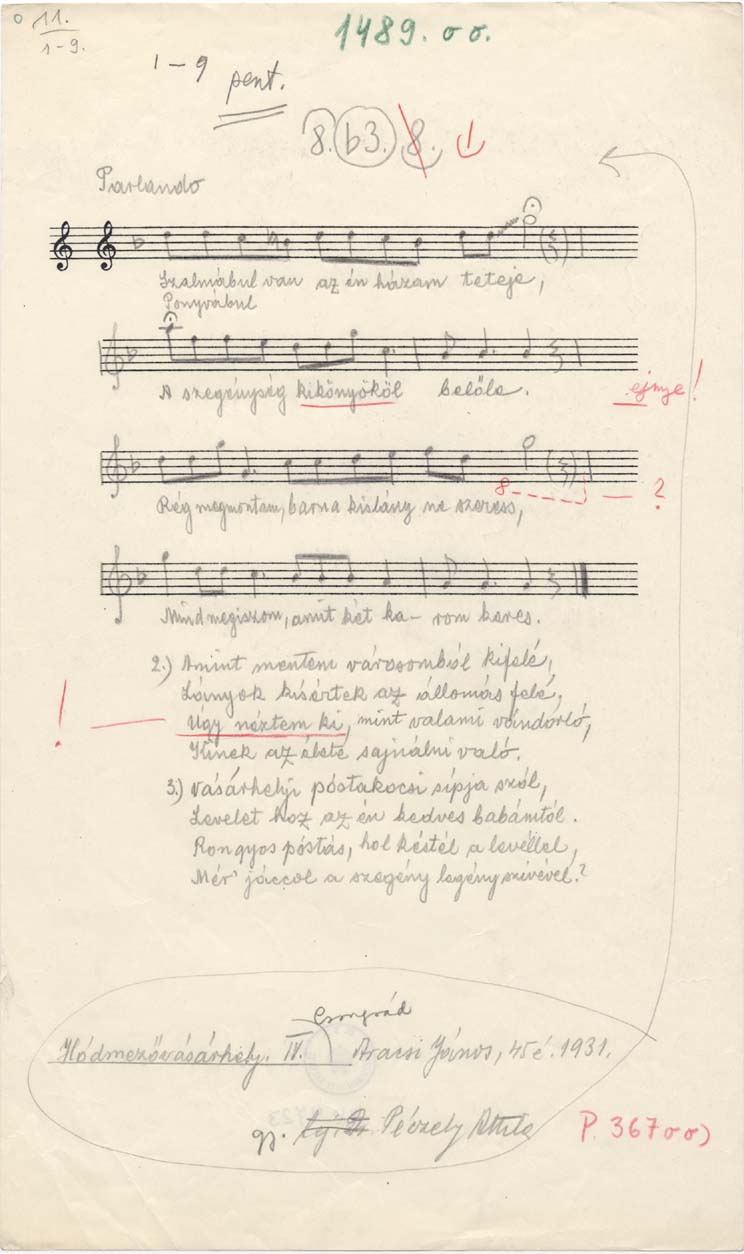 11.
1-9.
1489. oo.
1-9 pent.
8. b3. 8.
Parlando
Szalmábul van az én házam teteje,
Ponyvábul
A szegénység kikönyököl belőle.
ejnye!
Rég megmontam, barna kislány ne szeress,
8 ?
Mind megiszom, amit két ka- rom keres.
2.) Amint mentem városomból kifelé,
Lányok kísértek az állomás felé,
! Úgy néztem ki, mint valami vándorló,
Kinek az élete sajnálni való.
3.) Vásárhelyi póstakocsi sípja szól,
Levelet hoz az én kedves babámtól.
Rongyos póstás, hol késtél a levéllel,
Mér' jáccol a szegény legény szívével?
Csongrád
Hódmezővásárhely. IV. Aracsi János, 45 é. 1931.
gy. Péczely Attila
P. 367oo)